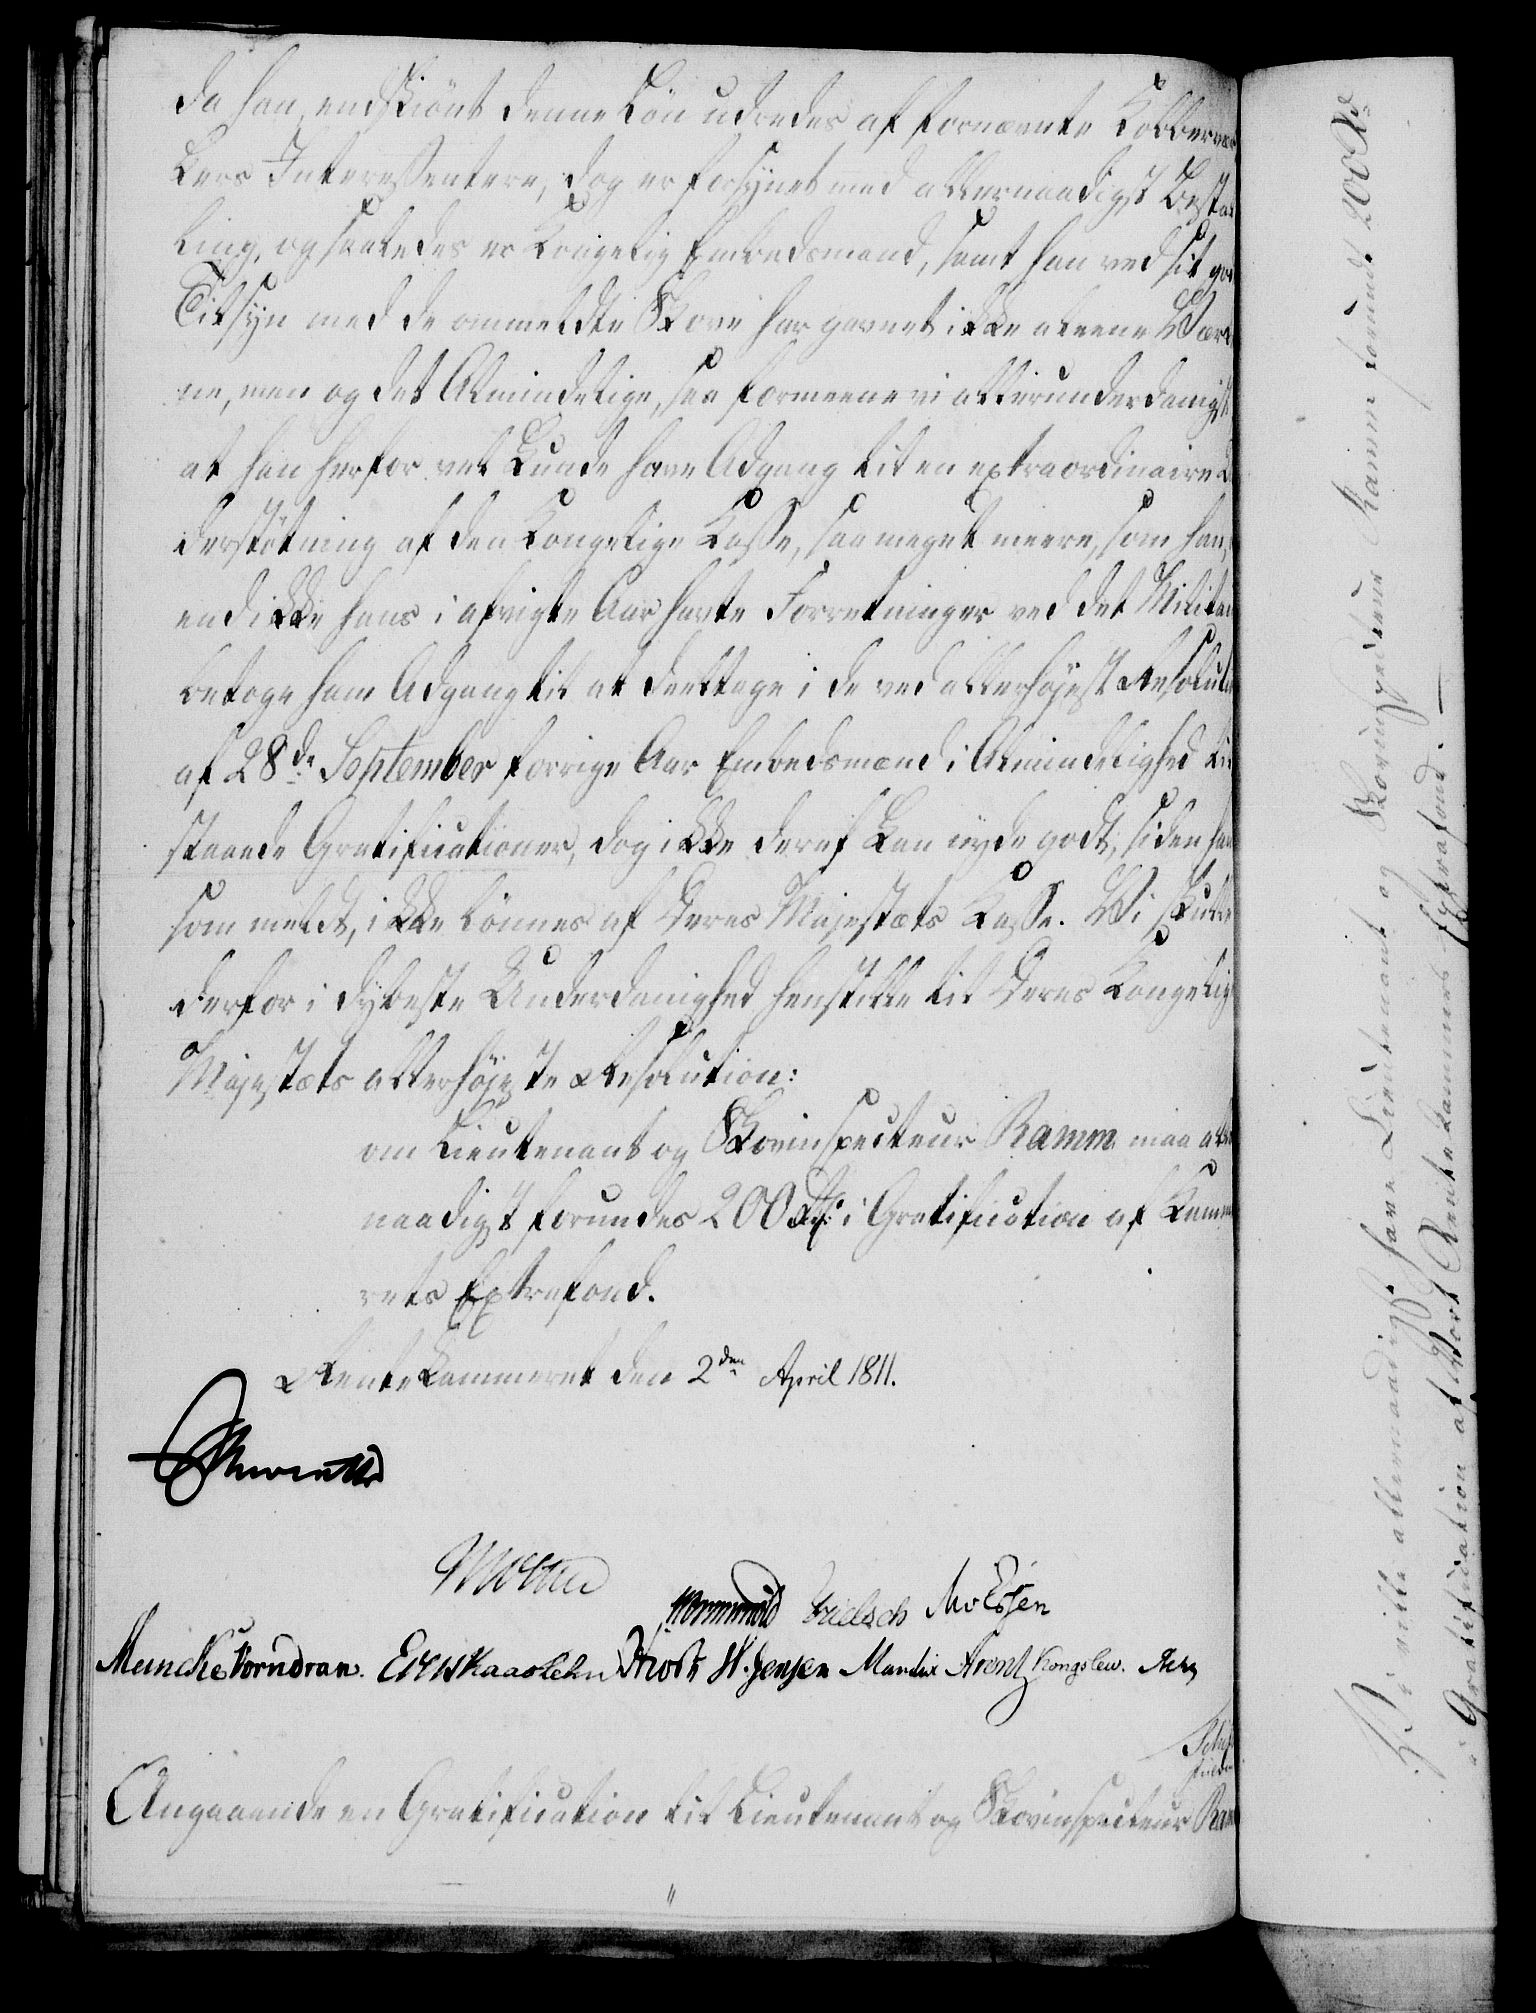 da han, endskiönt denne Lön udredes af fornævnte Kobberver
kers Interessentere, dog er forsynet med allernaadigst Bestal
ling, og saaledes er Kongelig Embedsmand, samt han ved sit gode
Tilsyn med de anmeldte Skove har gavnet ikke alene Værker
ne, men og det Almindelige, saa formeene vi allerunderdanigst
at han herfor vel kunde have Adgang til en extraordinaire Un
derstötning af den Kongelige Kasse, saa meget meere, som han,
end ikke hans i afvigte Aar havte Forretninger ved det Militaire
betoge ham Adgang til at deeltage i de ved allerhöjest Resolution
af 28de September forrige Aar Embedsmænd i Almindelighed til
staaede Gratificationer, dog ikke deraf kan nyde godt, siden han
som meldt, ikke lönnes af Deres Majestæts Kasse. Vi skulle
derfor i dybeste Underdanighed henstille til Deres Kongelige
Majestæts allerhöjeste Resolution:
om Lieutenant og Skovinspecteur Ramm maa aller
naadigst forundes 200 Rd. i Gratification af Kamme
rets Extrafond.
Rentekammeret den 2den April 1811.
Meincke Vorndran. Knoph H. Jensen Mandix Arent Kongslew.
Angaaende en Gratification til Lieutenant og Skovinspecteur Ramm
Vi ville allernaadigst have Lieutenant og Skovinspecteur Ramm forundt 200 Rd
i Gratification af Vort Rentekammers Extrafond.